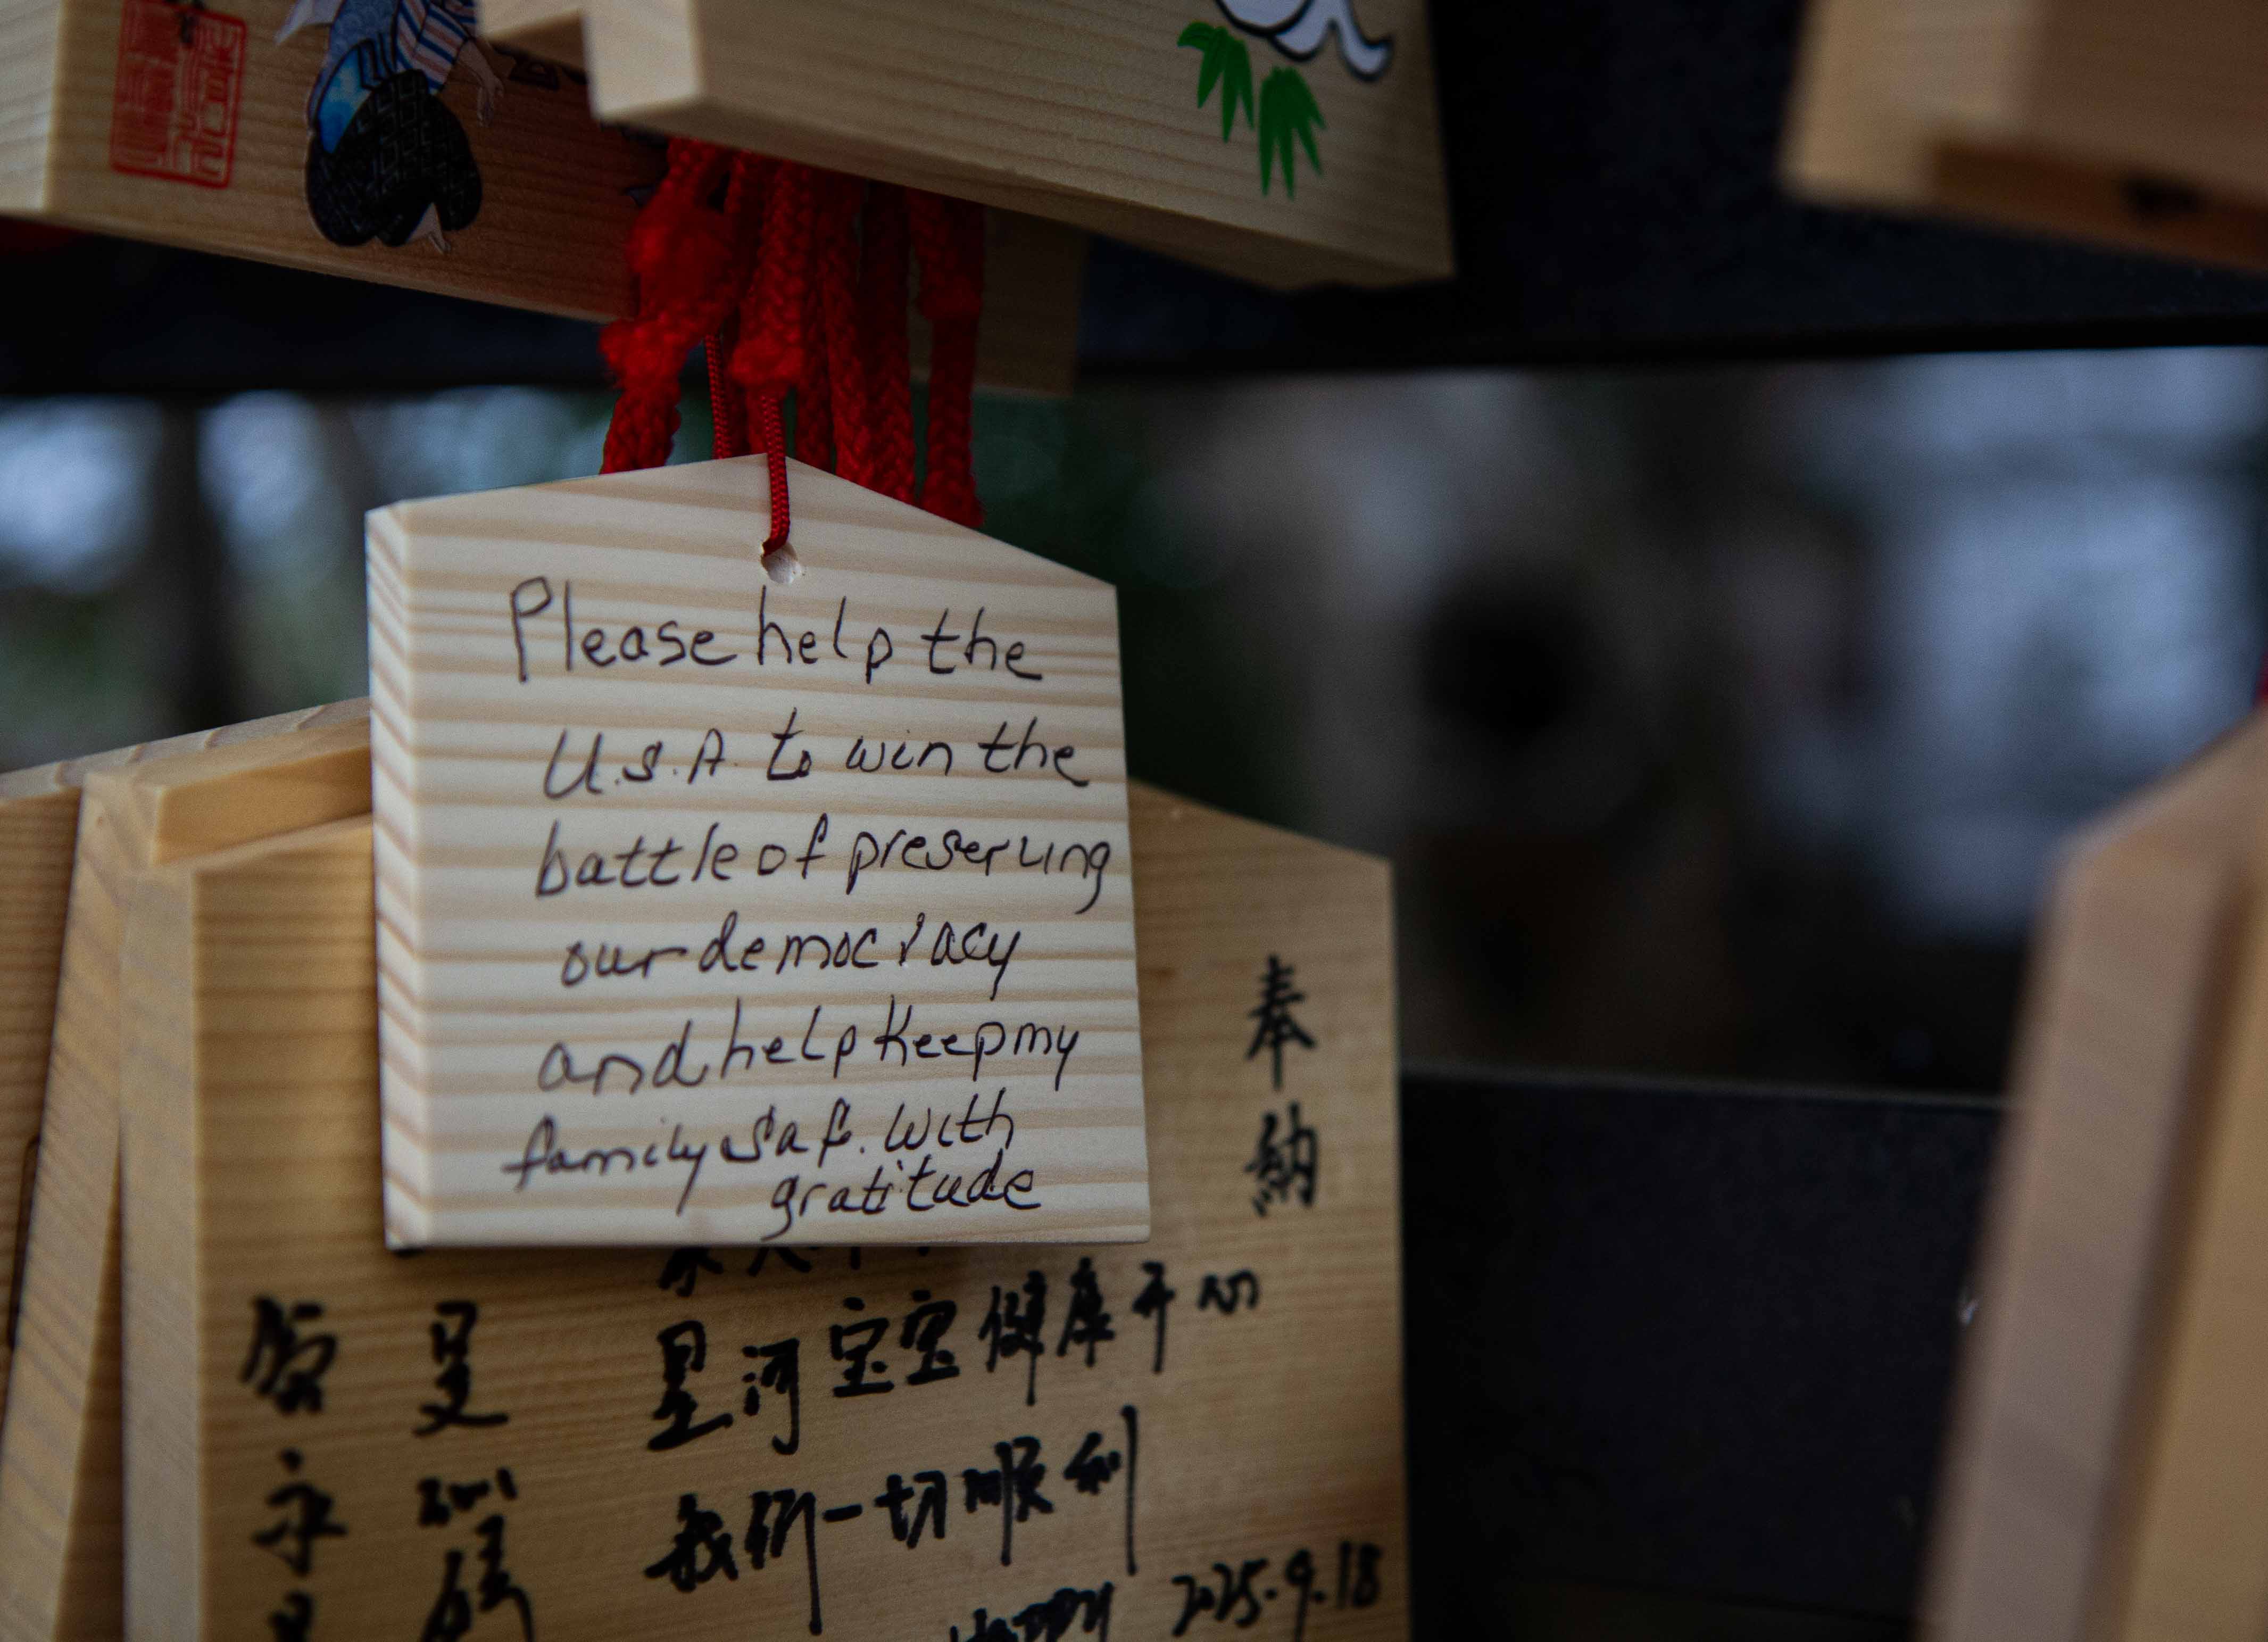 Please help the
U.S.A. to win the
battle of preserving
our democracy
and help keep my
family saf. with
gratitude
奉納
星河宝宝健康开心
我们一切顺利
2025.9.18